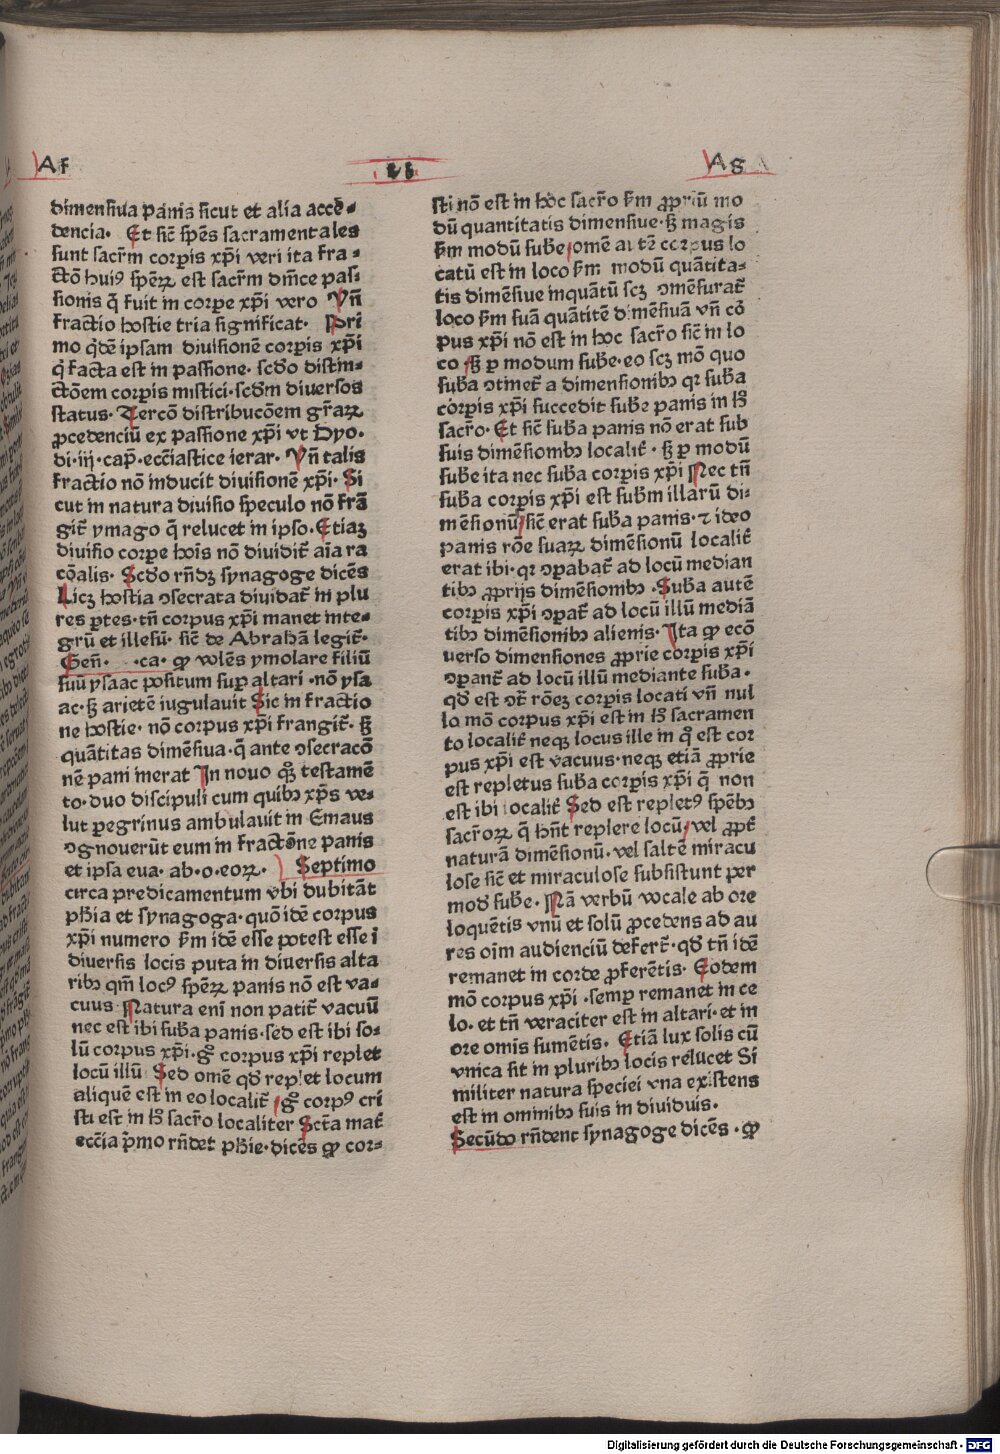 Af
Ag
dimensiua panis sicut et alia accē-
dencia. Et sic̄ sp̄es sacramentales
sunt sacr̄m corp̄is xp̄i veri ita fra-
ctō huiꝰ sp̄eꝝ est sacr̄m dn̄ice pas-
sionis q̄ fuit in corpe xp̄i vero Vn̄
fractio hostie tria significat. Pri
mo qͥdē ipsam diuisionē corpis xp̄i
q̄ facta est in passione. scd̄o distin-
ctōem corp̄is mistici. scd̄m diuersos
status. Tercō distribucōem gr̄aꝝ
ꝓcedenciū ex passione xp̄i vt Dyo.
di. iij. cap̄. ecc̄iastice ierar. Vn̄ talis
fractio nō inducit diuisionē xp̄i. Si
cut in natura diuisio speculo nō frā
git̄ ymago q̄ relucet in ipso. Etiaꝫ
diuisio corpe hoīs nō diuidit̄ aīa ra
cōalis. Scd̄o rn̄dꝫ synagoge dicēs
Licꝫ hostia ꝯsecrata diuidat̄ in plu
res ꝑtes. tn̄ corpus xp̄i manet inte-
grū et illesū. sic̄ de Abrahā legit̄.
Gen̄. ca. ꝙ volēs ymolare filiū
suū ysaac positum suꝑ altari. nō ysa
ac. sꝫ arietē iugulauit Sic in fractio
ne hostie. nō corpus xp̄i frangit̄. sꝫ
quātitas dimēsiua. q̄ ante ꝯsecracō
nē pani inerat In nouo qͦꝫ testamē
to. duo discipuli cum quibꝫ xp̄s ve-
lut ꝑegrinus ambulauit in Emaus
ꝯgnouerūt eum in fractōne panis
et ipsa eua. ab. o. eoꝝ. Septimo
circa predicamentum vbi dubitāt
ph̄ia et synagoga. quō idē corpus
xp̄i numero sm̄ idē esse potest esse ī
diuersis locis puta in diuersis alta
ribꝫ qm̄ locꝰ sp̄eꝝ panis nō est va-
cuus. Natura eni non patit̄ vacuū
nec est ibi sub̄a panis. sed est ibi so-
lū corpus xp̄i. gͦ corpus xp̄i replet
locū illū Sed omē qd̄ replet locum
aliquē est in eo localit̄ gͦ corpꝰ cri
sti est in h̄ sacr̄o localiter Scta mat̄
ecc̄ia p̄mo rn̄det ph̄ie. dicēs ꝙ cor-
sti nō est in hoc sacr̄o sm̄ ꝓpriū mo
dū quantitatis dimensiue. sꝫ magis
sm̄ modū sub̄e omē autē corpus lo
catū est in loco sm̄ modū quātita-
tis dimēsiue inquātū scꝫ ꝯmēsurat̄
loco sm̄ suā quātitē dimēsiuā vn̄ cō
pus xp̄i nō est in hoc sacr̄o sic̄ in lo
co sꝫ ꝑ modum sub̄e. eo scꝫ mō quo
sub̄a ꝯtinet̄ a dimensionibꝫ qꝛ sub̄a
corp̄is xp̄i succedit sub̄e panis in h̄
sacr̄o. Et sic̄ sub̄a panis nō erat sub
suis dimēsiombꝫ localit̄. sꝫ ꝑ modū
sub̄e ita nec sub̄a corpis xp̄i Nec tn̄
sub̄a corp̄is xp̄i est sub̄m illarū di-
mēsionū sic̄ erat sub̄a panis. ⁊ ideo
panis rōe suaꝝ dimēsionū localit̄
erat ibi. qꝛ ꝯꝑabat̄ ad locū median
tibꝫ ꝓprijs dimēsiombꝫ. Sub̄a autē
corp̄is xp̄i ꝯꝑat̄ ad locū illū mediā
tibꝫ dimēsionibꝫ alienis. Ita ꝙ ecō
uerso dimensiones ꝓprie corp̄is xp̄i
ꝯꝑant̄ ad locū illū mediante sub̄a.
qd̄ est ꝯt̄ rōeꝫ corp̄is locati vn̄ nul
lo mō corpus xp̄i est in h̄ sacramen
to localit̄ neqꝫ locus ille in qͦ est cor
pus xp̄i est vacuus. neqꝫ etiā ꝓprie
est repletus sub̄a corp̄is xp̄i q̄ non
est ibi localit̄ Sed est repletꝰ sp̄ebꝫ
sacr̄oꝝ q̄ hn̄t replere locū, vel ꝓpt̄
naturā dimēsionū. vel saltē miracu
lose sic̄ et miraculose subsistunt per
mod̄ sub̄e. Nā verbū vocale ab ore
loquētis vnū et solū ꝓcedens ad au
res oīm audienciū defert̄. qd̄ tn̄ idē
remanet in corde ꝓferētis. Eodem
mō corpus xp̄i. semꝑ remanet in ce
lo. et tn̄ veraciter est in altari. et in
ore omis sumētis. Etiā lux solis cū
vnica sit in pluribꝫ locis relucet Si
militer natura speciei vna existens
est in ominibꝫ suis in diuiduis.
Secūdo rn̄denc synagoge dicēs. ꝙ
Digitalisierung gefördert durch die Deutsche Forschungsgemeinschaft - DFG